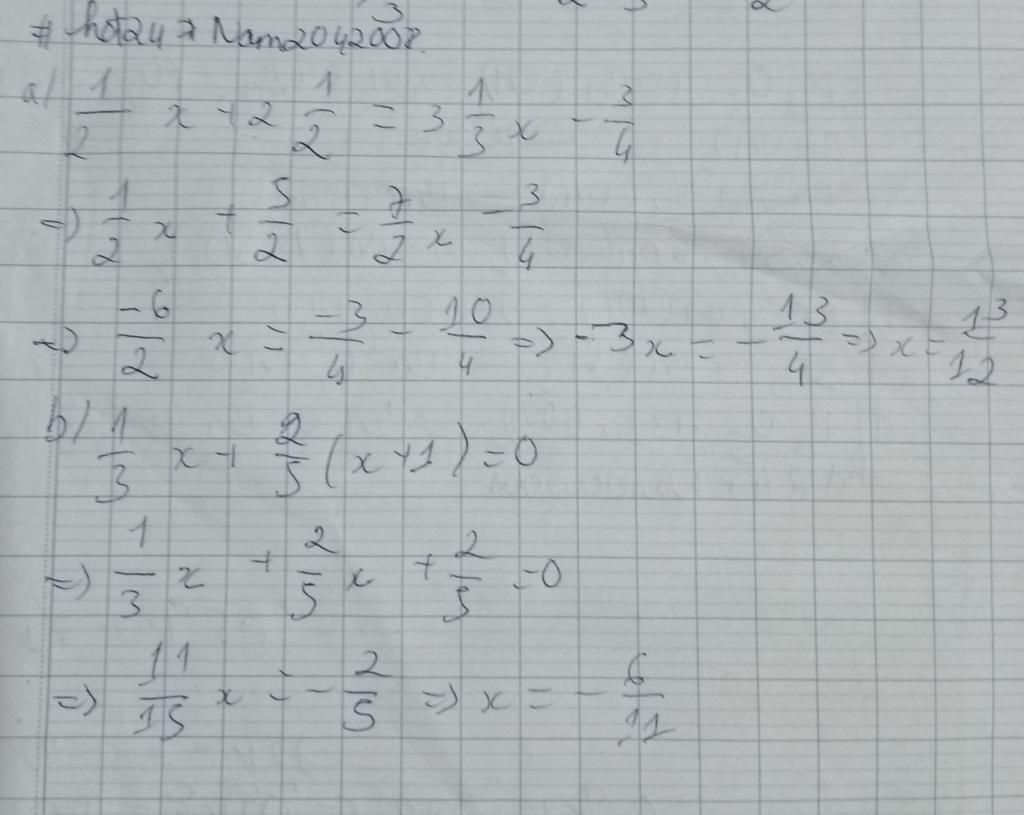 # hot24 7 Nam2042008.
a/ 1/2 x + 2 1/2 = 3 1/3 x - 3/4
=> 1/2 x + 5/2 = 7/2 x - 3/4
=> -6/2 x = -3/4 - 10/4 => -3x = -13/4 => x = 13/12
b/ 1/3 x + 2/5 (x+1) = 0
=> 1/3 x + 2/5 x + 2/5 = 0
=> 11/15 x = -2/5 => x = -6/11